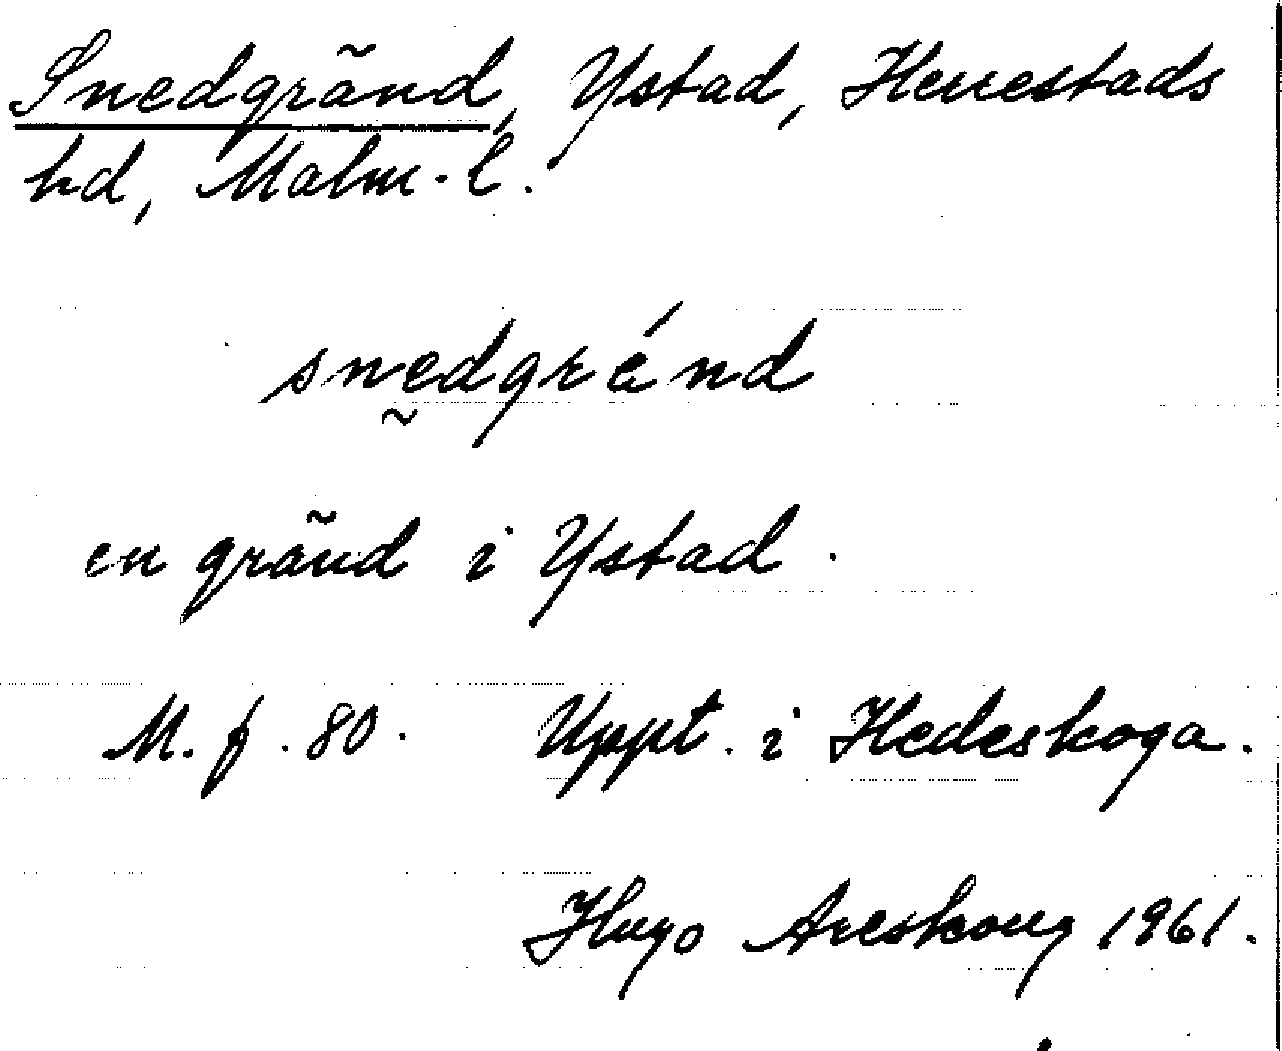 Snedgränd, Ystad, Herrestads
hd, Malm-l.
snedgränd
en gränd i Ystad.
M. f. 80. Uppt. i Hedeskoga.
Hugo Areskoug 1961.